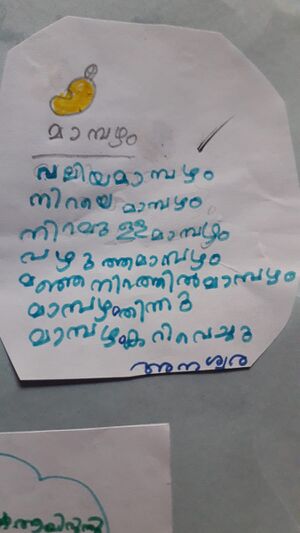 മാമ്പഴം
വലിയമാമ്പഴം
നിറയെ മാമ്പഴം
നിറമുള്ളമാമ്പഴം
പഴുത്തമാമ്പഴം
മഞ്ഞനിറത്തിൽമാമ്പഴം
മാമ്പഴംതിന്നു
മാമ്പഴംകറിവെച്ചു
അനശ്വര